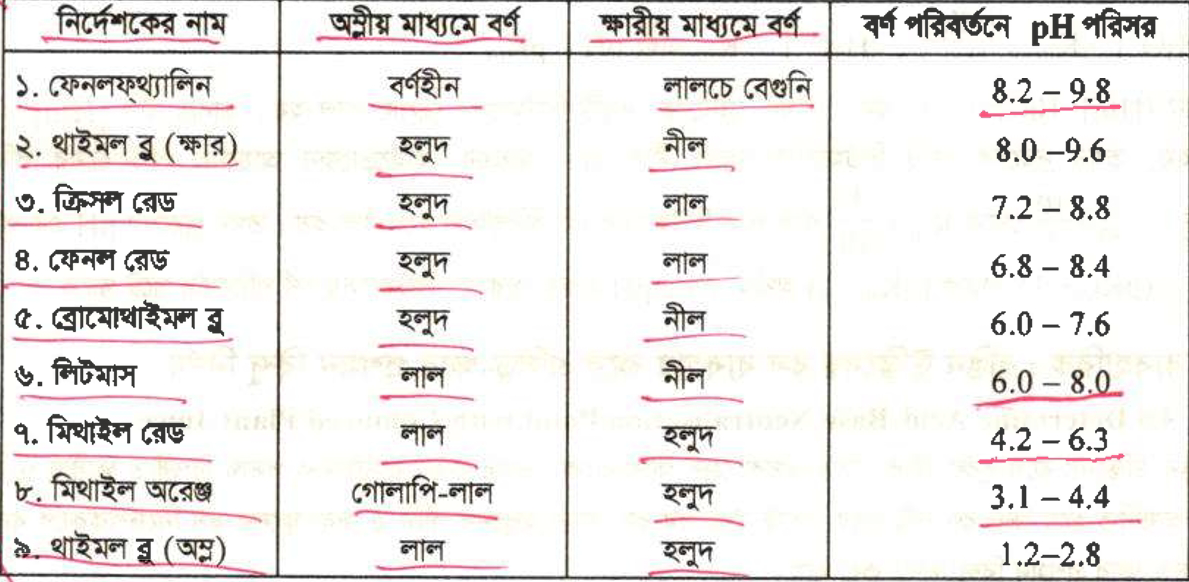 নির্দেশকের নাম অম্লীয় মাধ্যমে বর্ণ ক্ষারীয় মাধ্যমে বর্ণ বর্ণ পরিবর্তনে pH পরিসর
১. ফেনলফ্থ্যালিন বর্ণহীন লালচে বেগুনি 8.2 – 9.8
২. থাইমল ব্লু (ক্ষার) হলুদ নীল 8.0 –9.6
৩. ক্রিসল রেড হলুদ লাল 7.2 – 8.8
৪. ফেনল রেড হলুদ লাল 6.8 – 8.4
৫. ব্রোমোথাইমল ব্লু হলুদ নীল 6.0 – 7.6
৬. লিটমাস লাল নীল 6.0 – 8.0
৭. মিথাইল রেড লাল হলুদ 4.2 – 6.3
৮. মিথাইল অরেঞ্জ গোলাপি-লাল হলুদ 3.1 – 4.4
৯. থাইমল ব্লু (অম্ল) লাল হলুদ 1.2–2.8